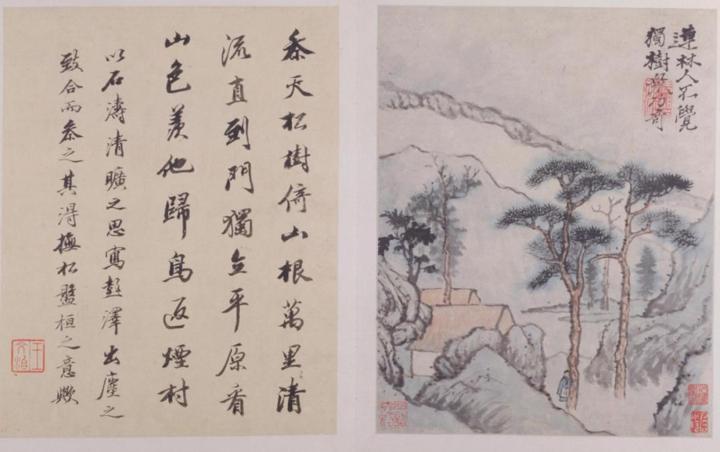 連林人不覺
獨樹眾乃奇
叅天松樹倚山根萬里清
流直到門獨立平原看
山色羨他歸鳥返煙村
以石濤清曠之思寫彭澤出塵之
致合而叅之其得撫松盤桓之意歟